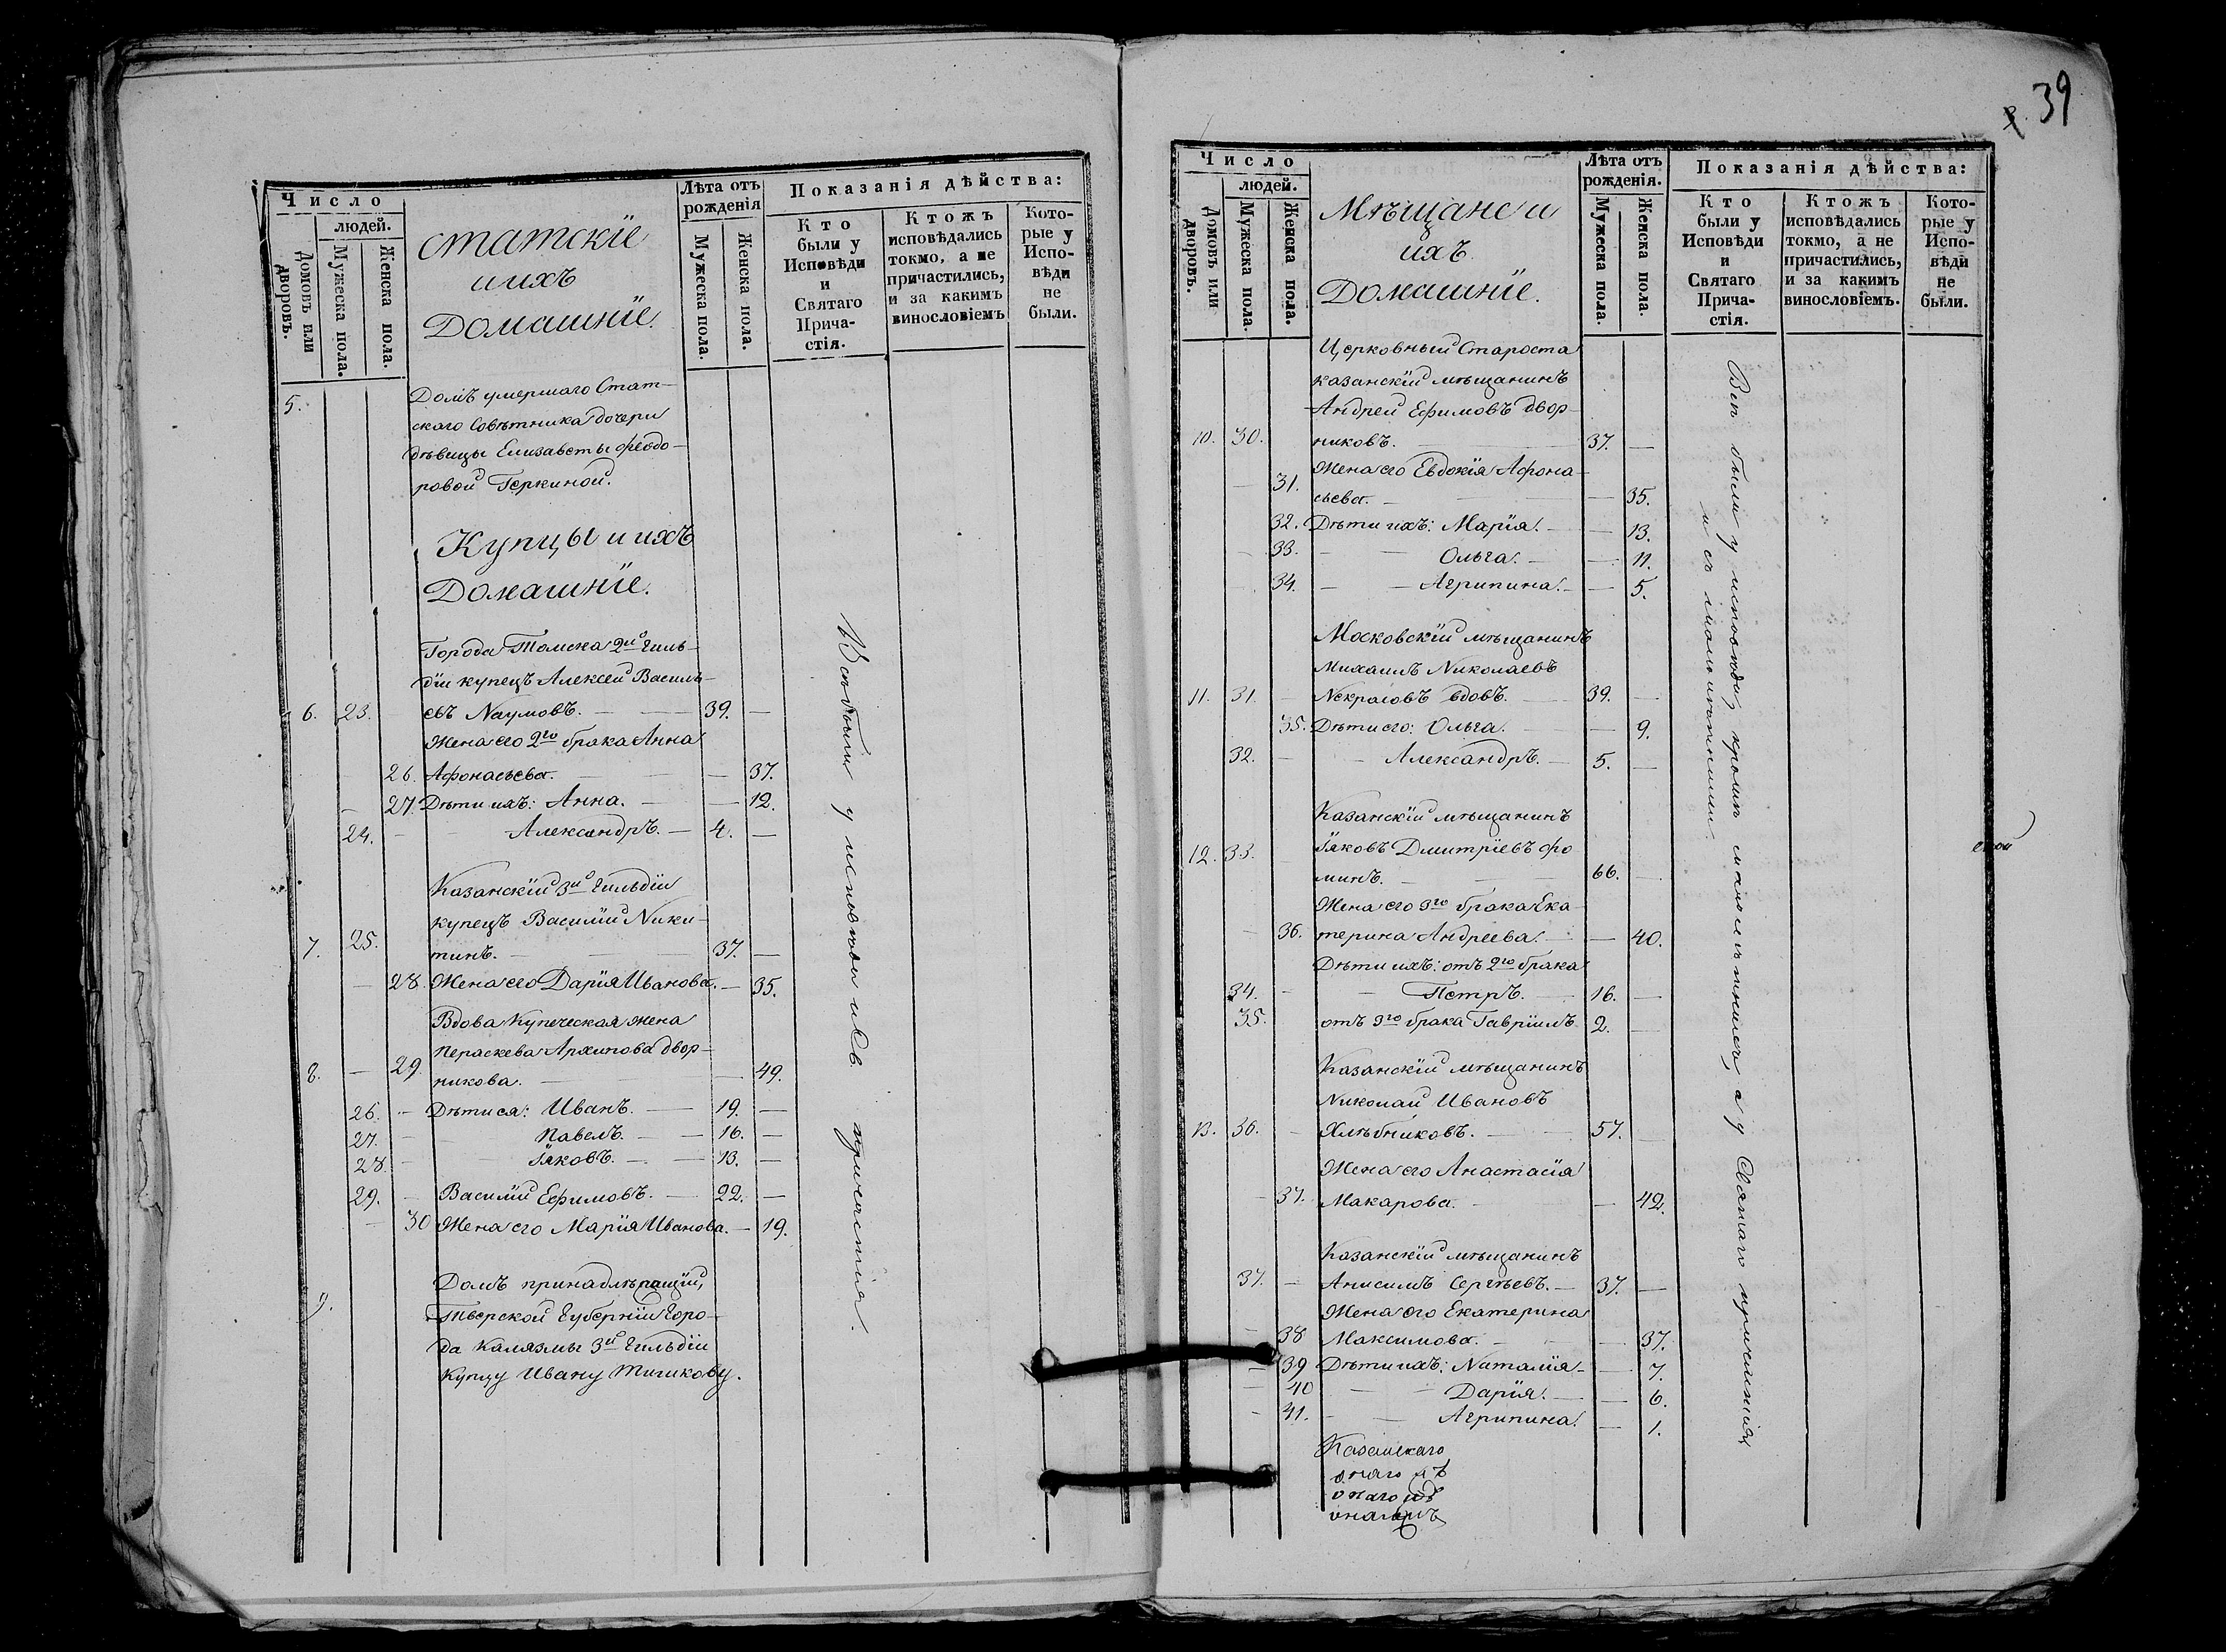 Число
людей.
Домовъ или дворовъ.
Мужеска пола.
Женска пола.
статскіе
и ихъ
Домашніе.
Лѣта отъ
рожденія
Мужеска пола.
Женска пола.
Показанія дѣйства:
Кто
были у
Исповѣди
и
Святаго
Прича-
стія.
Ктожъ
исповѣдались
токмо, а не
причастились,
и за какимъ
винословіемъ
Кото-
рые у
Испо-
вѣди
не
были.
5. Домъ умершаго Стат-
скаго Совѣтника дочери
дѣвицы Елизаветы Феодо-
ровой Геркиной.
Купцы и ихъ
Домашніе.
Города Томска 2й гиль-
діи купецъ Алексей Василь-
6. 23. евъ Наумовъ. — 39. —
Жена его 2го брака Анна
26. Афонасьева. — — 37.
— 27. Дѣти ихъ: Анна. — — 12.
24. — Александръ. — 4. —
Казанскій 3й гильдіи
купецъ Василій Ники-
7. 25. тинъ. — 37. —
— 28. Жена его Дарія Иванова. — 35.
Вдова Купеческая жена
Пераскева Архипова двор-
8. — 29. никова. — — 49.
26. — Дѣти ея: Иванъ. — 19. —
27. — Павелъ. — 16. —
28. — Іаковъ. — 13. —
29. — Василій Ефимовъ. — 22. —
— 30 Жена его Марія Иванова. — 19.
Домъ принадлѣжащій,
9. Тверской Губерніи Горо-
да Калязмы 3й гильдіи
Купцу Ивану Тичикову.
Всѣ были у исповѣди и Св. причастія.
39
Число
людей.
Домовъ или дворовъ.
Мужеска пола.
Женска пола.
Мѣщане и
ихъ
Домашніе.
Лѣта отъ
рожденія.
Мужеска пола.
Женска пола.
Показанія дѣйства:
Кто
были у
Исповѣди
и
Святаго
Прича-
стія.
Ктожъ
исповѣдались
токмо, а не
причастились,
и за какимъ
винословіемъ.
Кото-
рые у
Испо-
вѣди
не
были.
Церковный Староста
казанскій мѣщанинъ
Андрей Ефимовъ двор-
10. 30. никовъ. — 37. —
Жена его Евдокія Афона-
— 31. сьева. — — 35.
32. Дѣти ихъ: Марія. — — 13.
— 33. — — Ольга. — — 11.
34. — — Агрипина. — — 5.
Московскій мѣщанинъ
Михаилъ Николаевъ
11. 31. — Некрасовъ вдовъ. — 39. —
35. Дѣти его: Ольга. — — 9.
32. — — Александръ. — 5. —
Казанскій мѣщанинъ
12. 33. Іаковъ Дмитріевъ фо
минъ. — 66. —
Жена его 3го брака Ека-
— 36. терина Андреева. — — 40.
Дѣти ихъ: отъ 2го брака
34. — — Петръ. — 16. —
35. отъ 3го брака Гавріилъ 2. —
Казанскій мѣщанинъ
Николай Ивановъ
13. 36. — Хлѣбниковъ. — 57. —
Жена его Анастасія
— 37. Макарова. — — 42.
Казанскій мѣщанинъ
37. — Анисимъ Сергѣевъ. — 37. —
Жена его Екатерина
— 38 Максимова. — — 37.
— 39 Дѣти ихъ: Наталія — — 7.
— 40 — — Дарія. — — 6.
— 41. — — Агрипина. — 1.
Казанскаго
Всѣ были у исповѣди, кромѣ малолѣтнихъ, а у Святаго причастія
и съ малолѣтними.